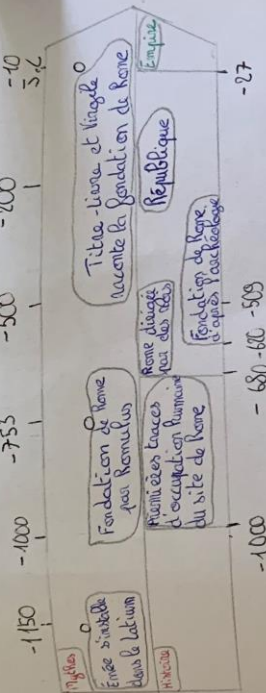 -1150
-1000
-753
-500
-200
-10
J.C
Mythes
Enée s'installe
dans le Latium
Fondation de Rome
par Romulus
Titre-Live et Virgile
raconte la fondation de Rome
Histoire
Premières traces
d'occupation humaine
du site de Rome
Rome dirigée
par des rois
Fondation de Rome
d'après l'archéologie
République
Empire
-1000
-680
-620
-509
-27